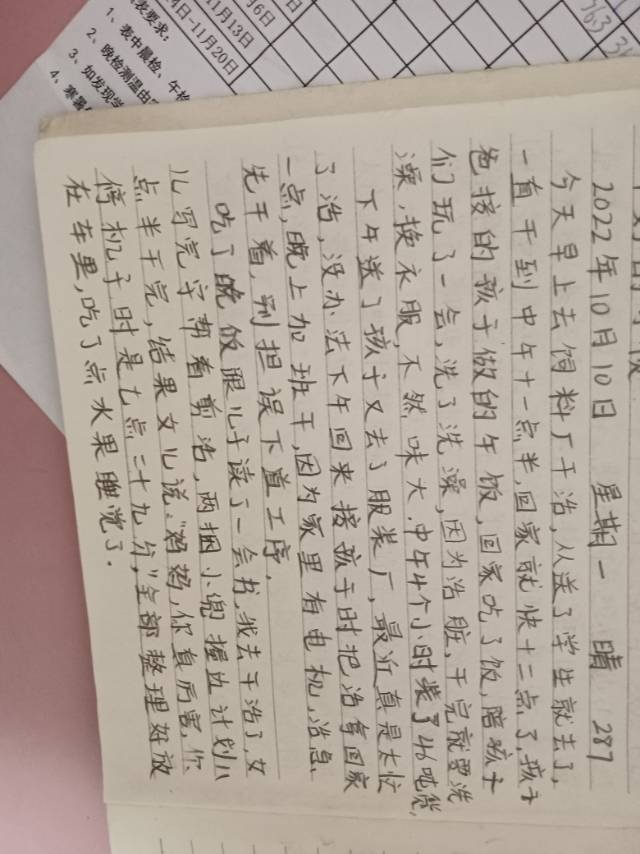 表要求:
1、表中晨检、午检
2、晚检测温由
3、如发现学
4、寒暑
月6日
11月13日
4日-11月20日
2022年10月10日 星期一 晴 287
今天早上去饲料厂干活,从送了学生就去了,
一直干到中午十一点半,回家就快十二点了,孩子
爸接的孩子做的午饭,回家吃了饭,陪孩子
们玩了一会,洗了洗澡,因为活脏,干完就要洗
澡,换衣服,不然味大.中午4个小时装了46吨货,
下午送了孩子又去了服装厂,最近真是太忙
了活,没办法下午回来接孩子时把活拿回家
一点,晚上加班干,因为家里有电机,活急、
先干着,别担误下道工序.
吃了晚饭跟儿子读了一会书,我去干活了,女
儿写完字帮着剪活,两捆小兜摆边计划八
点半干完,结果女儿说:“妈妈,你真厉害,你
停机子时是七点二十九分”全部整理好放
在车里,吃了点水果睡觉了.